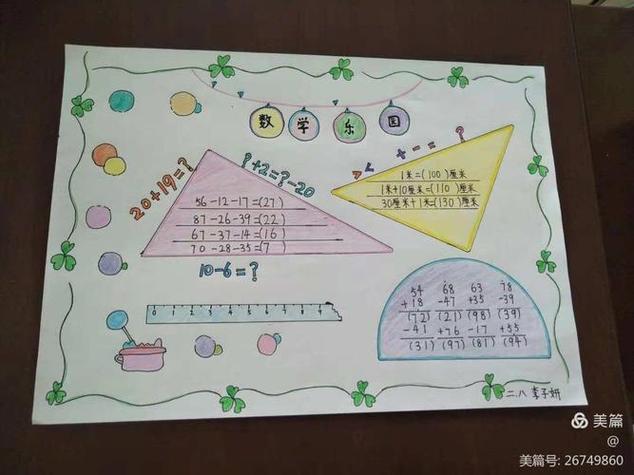 数学乐园
20+19=?
?+2=?-20
56-12-17=(27)
87-26-39=(22)
67-37-14=(16)
70-28-35=(7)
10-6=?
> < + - = ?
1米=(100)厘米
1米+10厘米=(110)厘米
30厘米+1米=(130)厘米
0 1 2 3 4 5 6 7 8 9
54 68 63 78
+18 -47 +35 -39
(72) (21) (98) (39)
-41 +76 -17 +55
(31) (97) (81) (94)
二.八 李子妍
美篇
@
美篇号: 26749860